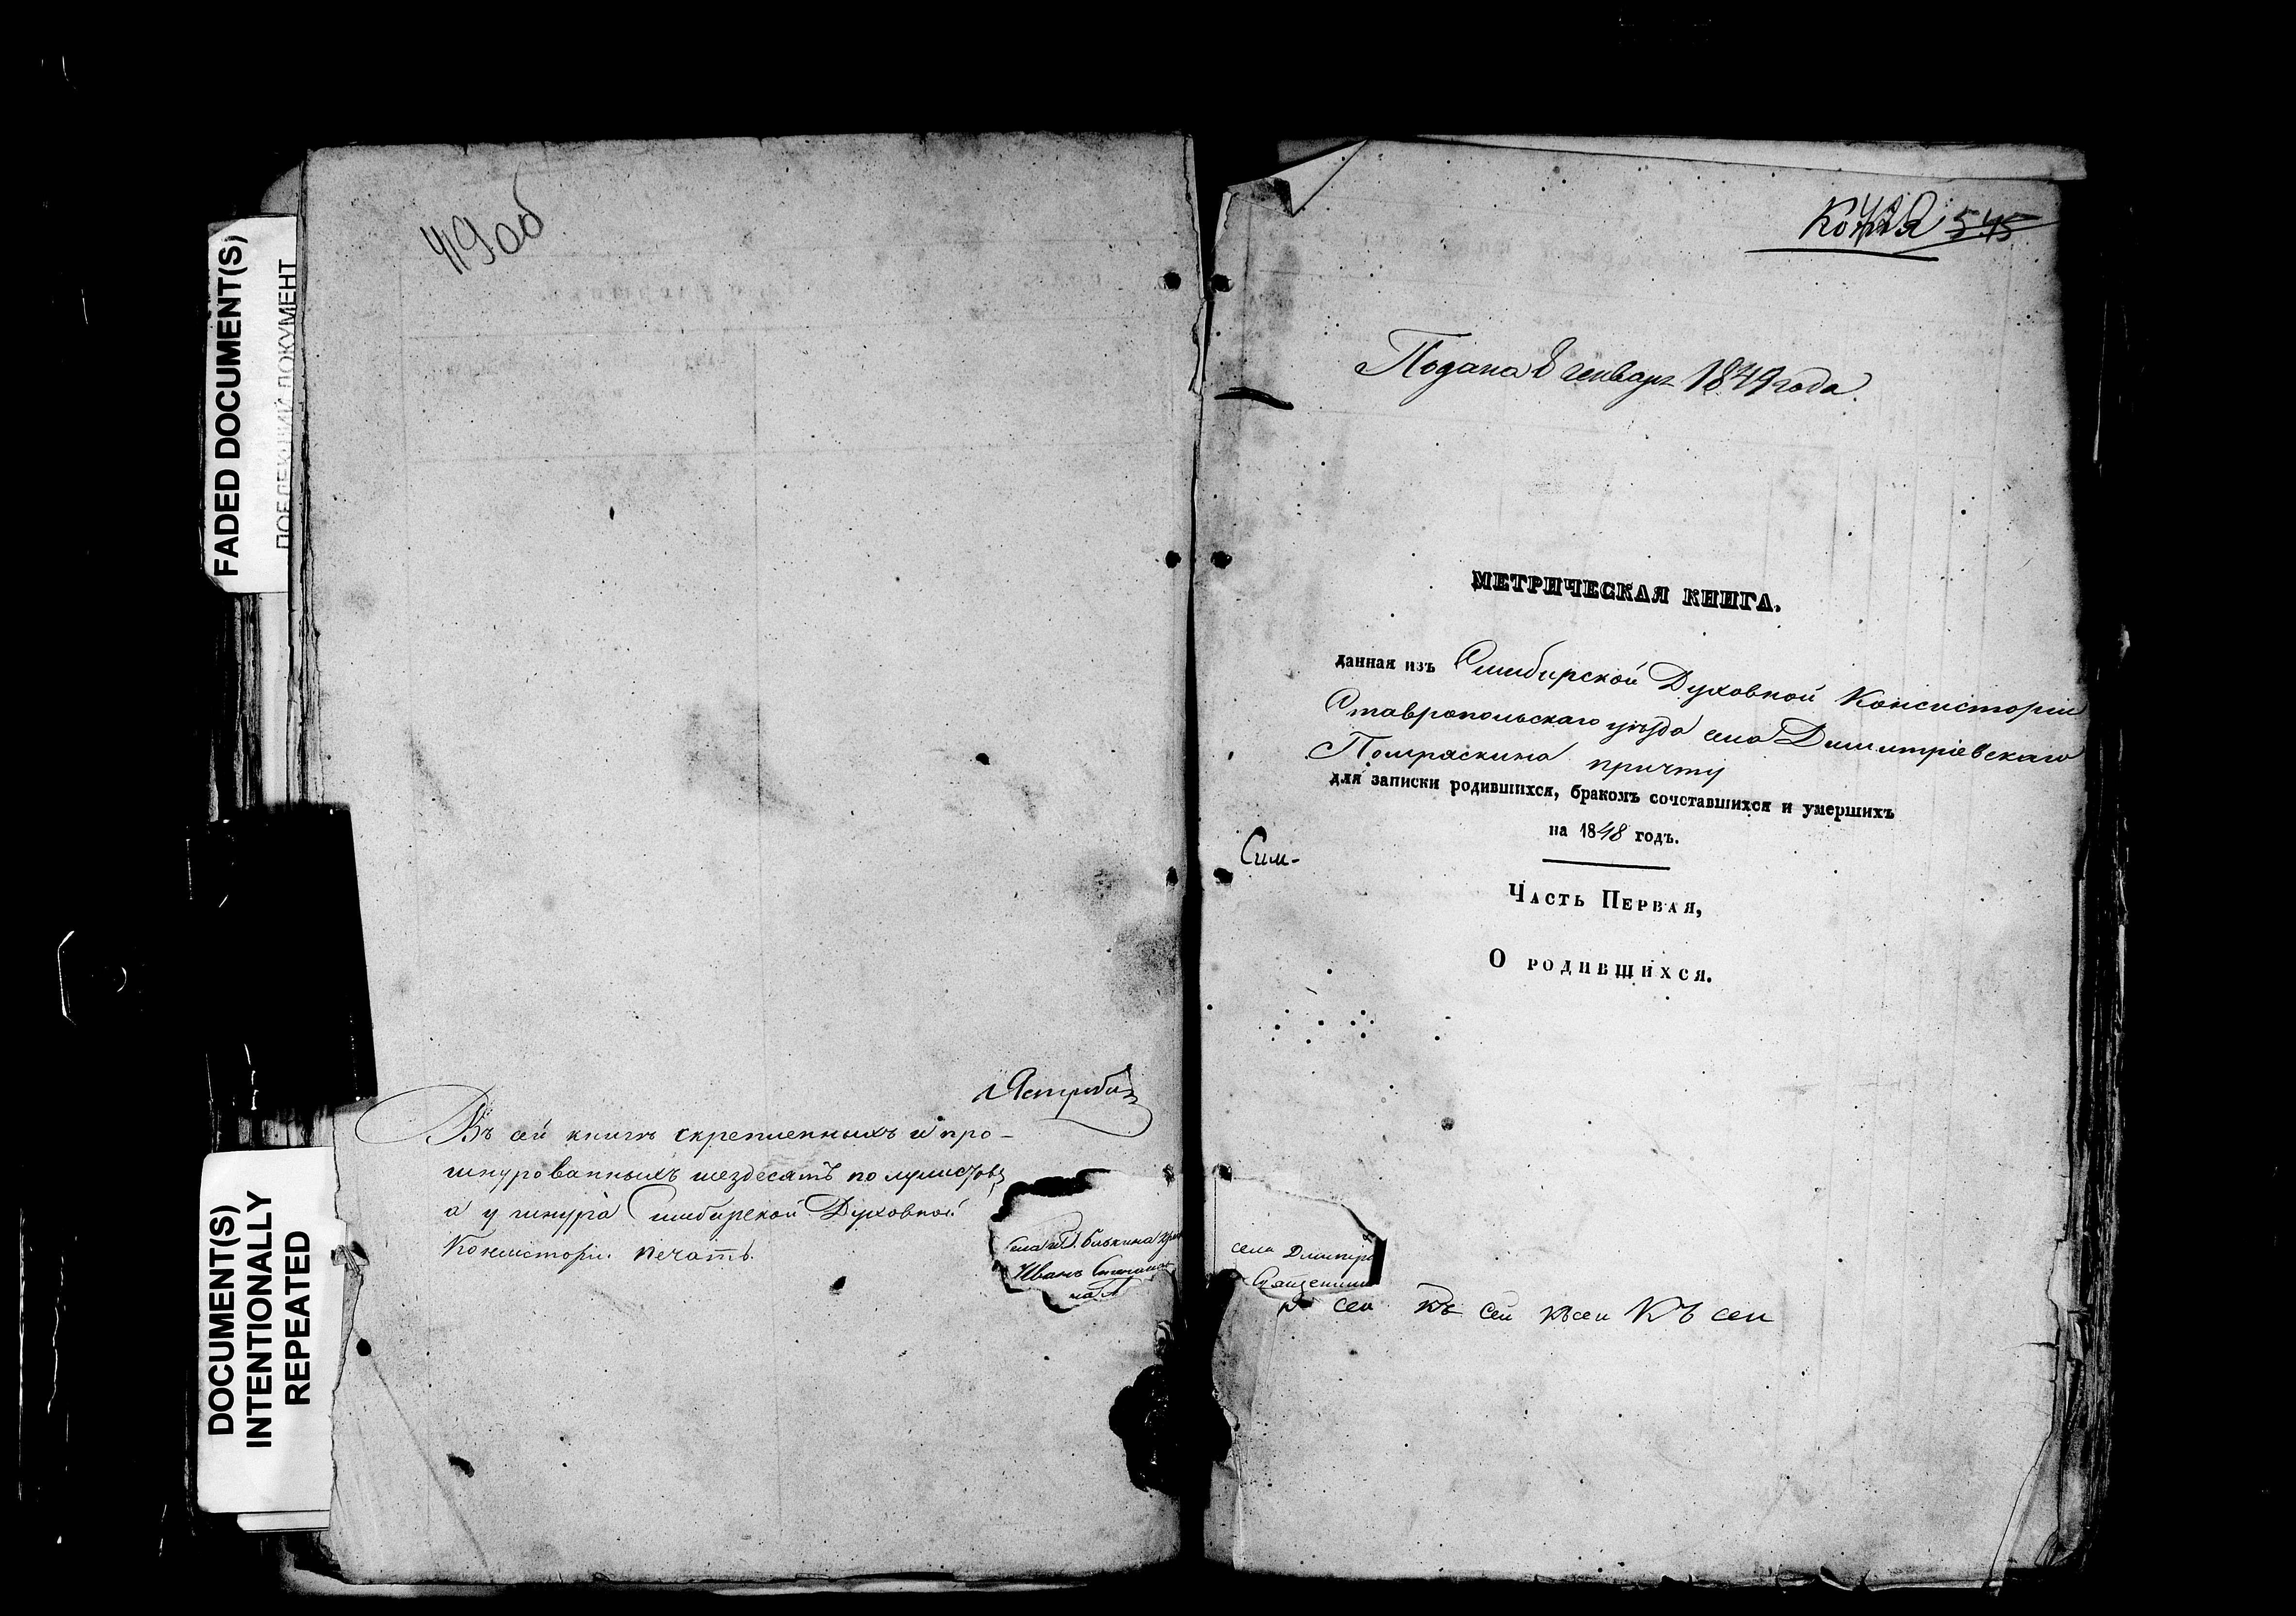 FADED DOCUMENT(S)
ДОКУМЕНТ
DOCUMENT(S)
INTENTIONALLY
REPEATED
419об
Въ сей книгѣ скрепленныхъ и про-
шнурованныхъ шездесятъ полулистовъ
а у шнура Симбирской Духовной
Консисторіи печать.
села
Иванъ
Копія 545
Подана 8 генваря 1849 года
МЕТРИЧЕСКАЯ КНИГА.
данная изъ Симбирской Духовной Консисторіи
Ставропольскаго уѣзда села Димитріевскаго
Помряскина причту
для записки родившихся, бракомъ сочетавшихся и умершихъ
на 1848 годъ.
Сим-
Часть Первая,
О родившихся.
села Дмитрі
Священник
сей къ сей къ сей Къ сей